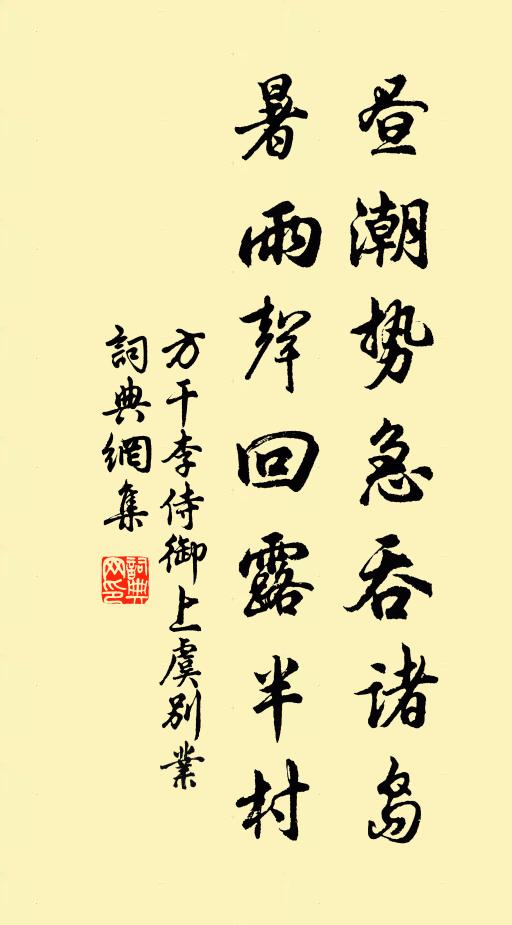 昼潮势急吞诸岛
暑雨聲回露半村
方干李侍御上虞別業
詞典網集
詞典
网印